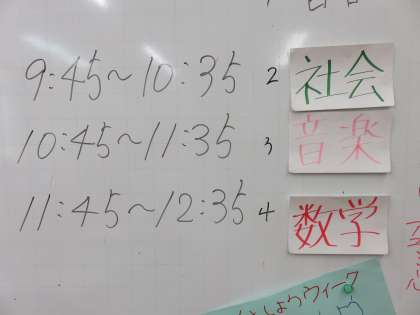 9:45～10:35 2 社会
10:45～11:35 3 音楽
11:45～12:35 4 数学
しょうウィーク